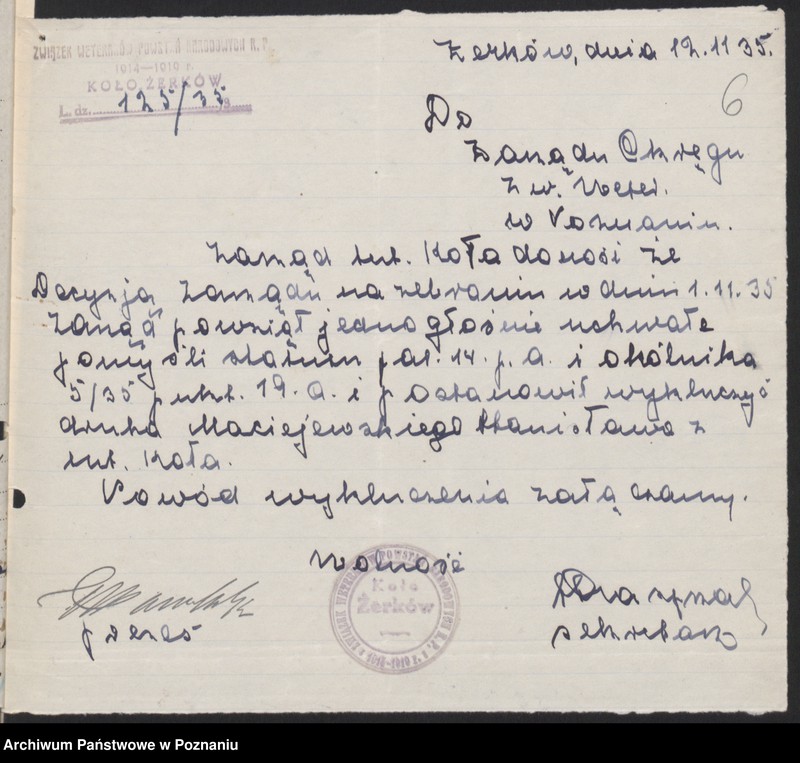 ZWIĄZEK WETERANÓW POWSTAŃ NARODOWYCH R. P.
1914—1919 r.
KOŁO ŻERKÓW
L. dz. 125/35
Żerków, dnia 12.11 35.
6
Do
Zarządu Okręgu
Zw. Weter.
w Poznaniu.
Zarząd tut. Koła donosi że
Decyzją Zarządu na zebraniu w dniu 1.11.35
Zarząd powziął jednogłośnie uchwałe
pomyśli statutu par. 14. p. a. i okólnika
5/35 pukt. 19. a. i postanowił wykluczyć
druha Maciejewskiego Stanisława z
tut. Koła.
Powód wykluczenia załączamy.
Wolność
Koło
Żerków
prezes
sekretarz
Archiwum Państwowe w Poznaniu